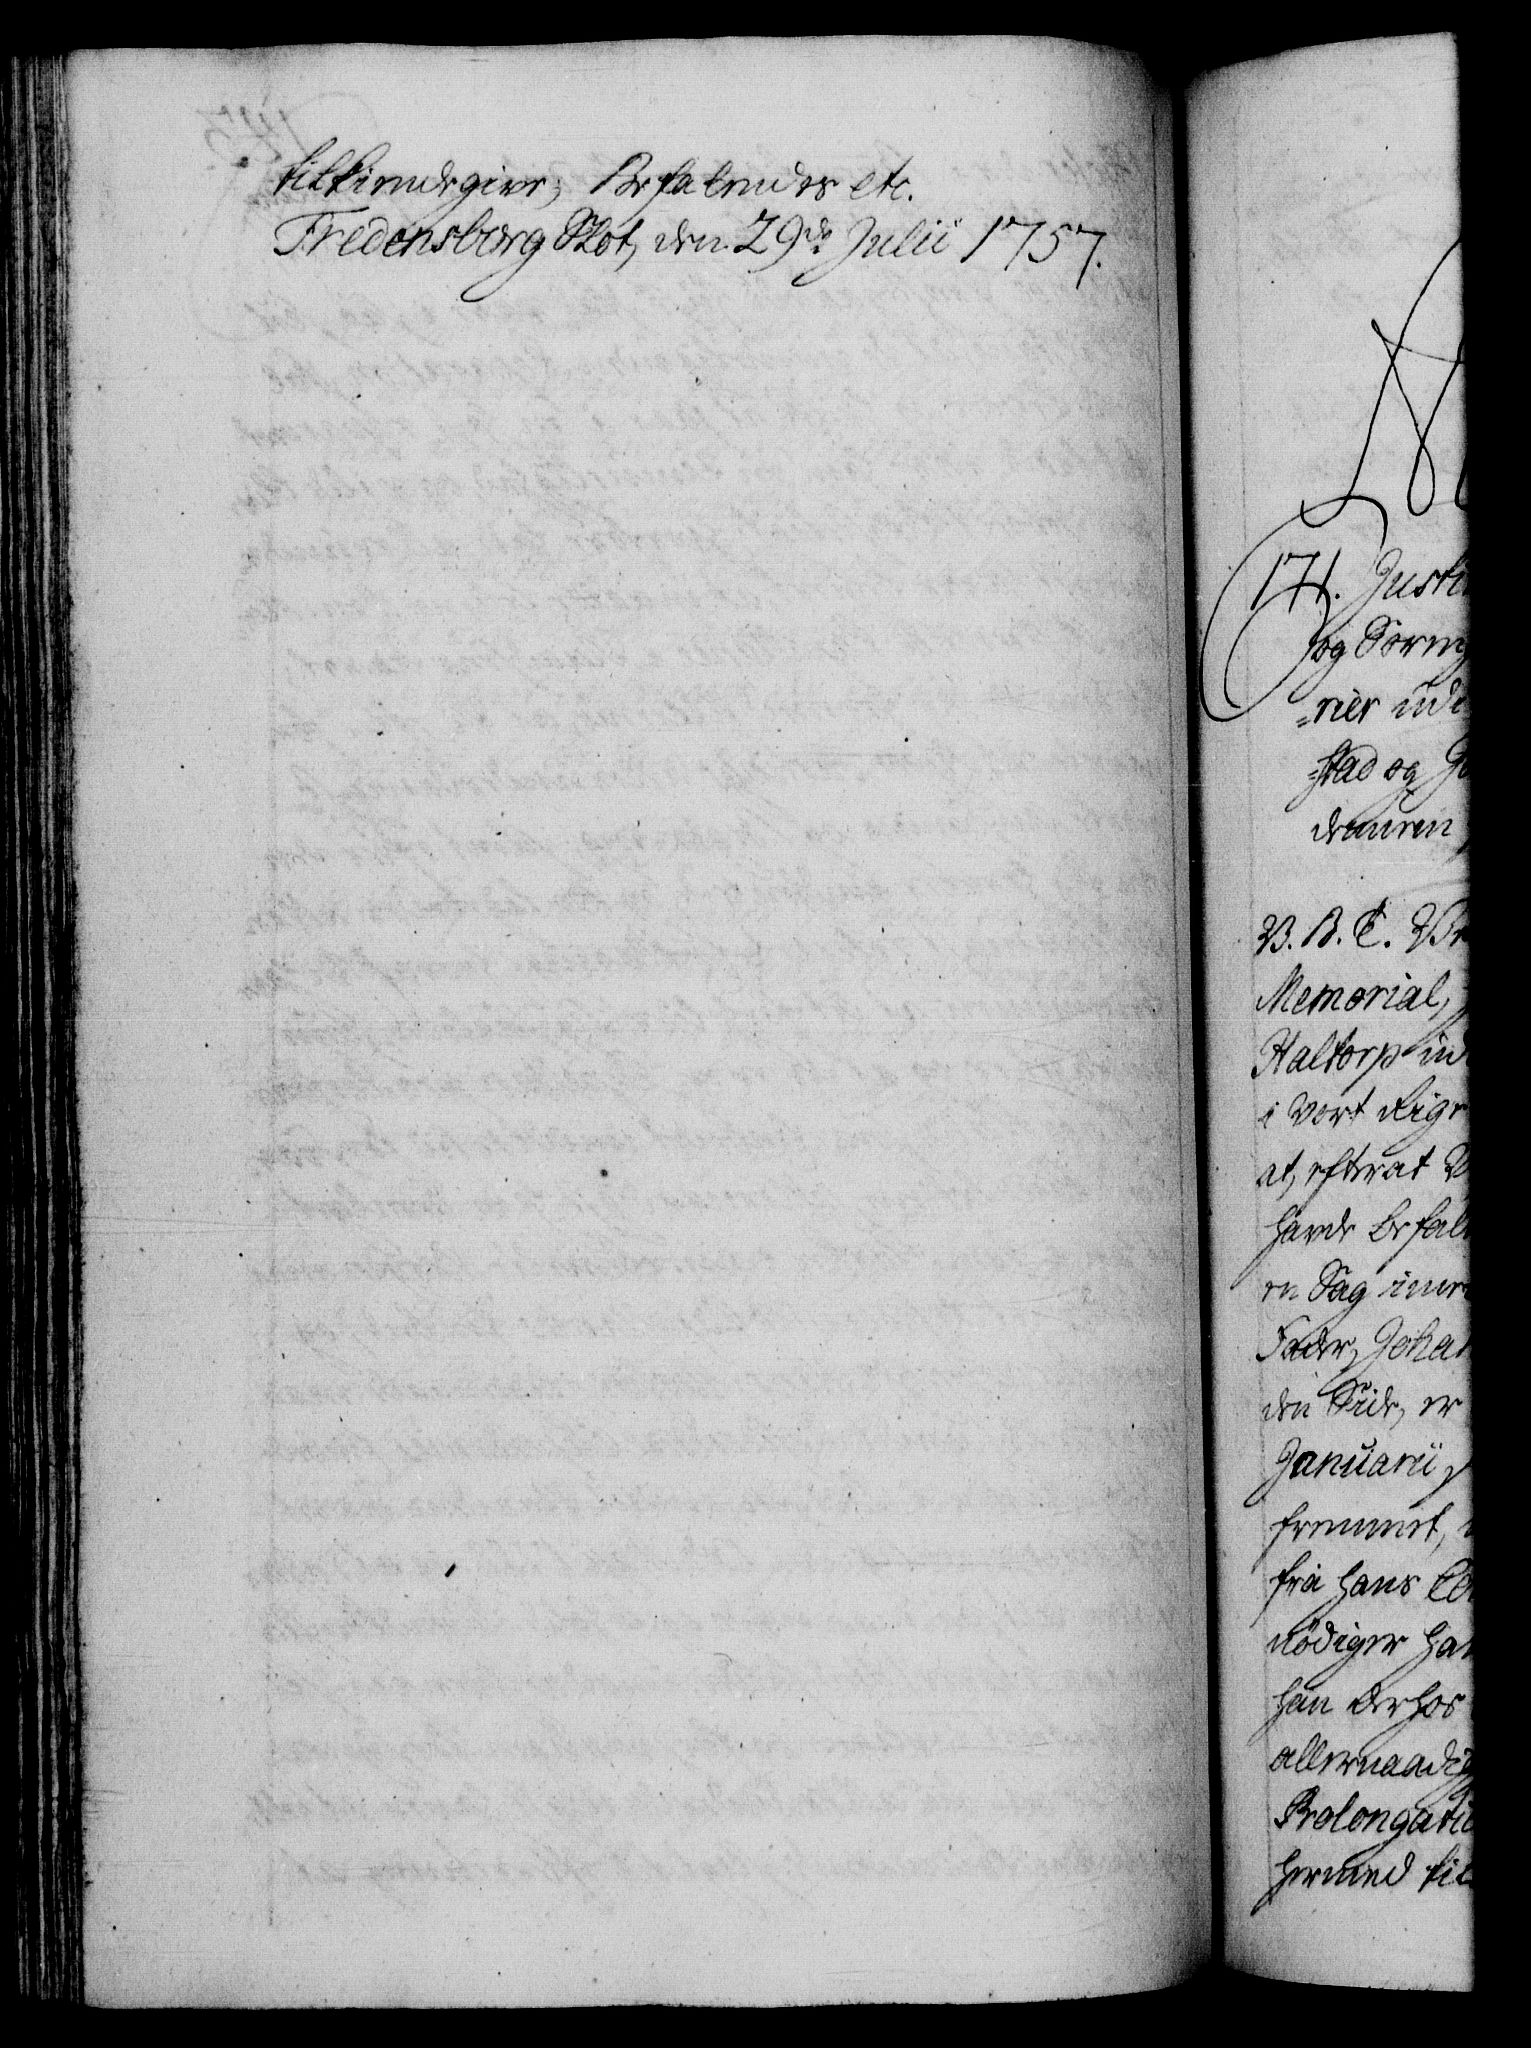 tilkiendegive, Befalendes etc.
Fredensborg Slot, den 29de Julii 1757.
171. Justi
og Soren
rier udi
stad og
V. B. T. Vor
Memorial,
Haltorp ud
i Vort Rige
at, efterat V
havde befal
en Sag imel
Fader, Johan
den Side, er
Januarii
fremmet,
fra hans
nødiger han
han derhos
allernaadig
Prolongatio
hermed til